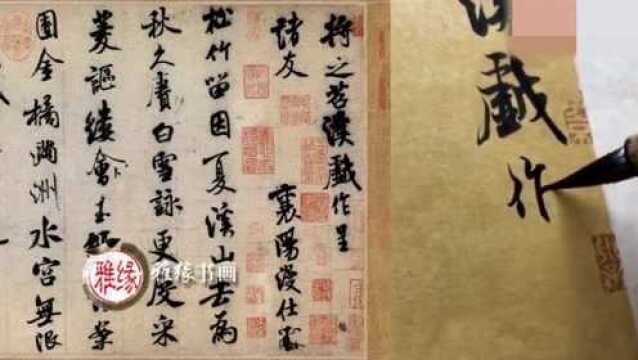 將之苕溪戲作呈
諸友
襄陽漫仕黻
松竹留因夏溪山去為
秋久賡白雪詠更度采
菱謳縷會玉鱸案
團金橘滿洲水宮無限
雅缘
雅缘书画
溪戲作